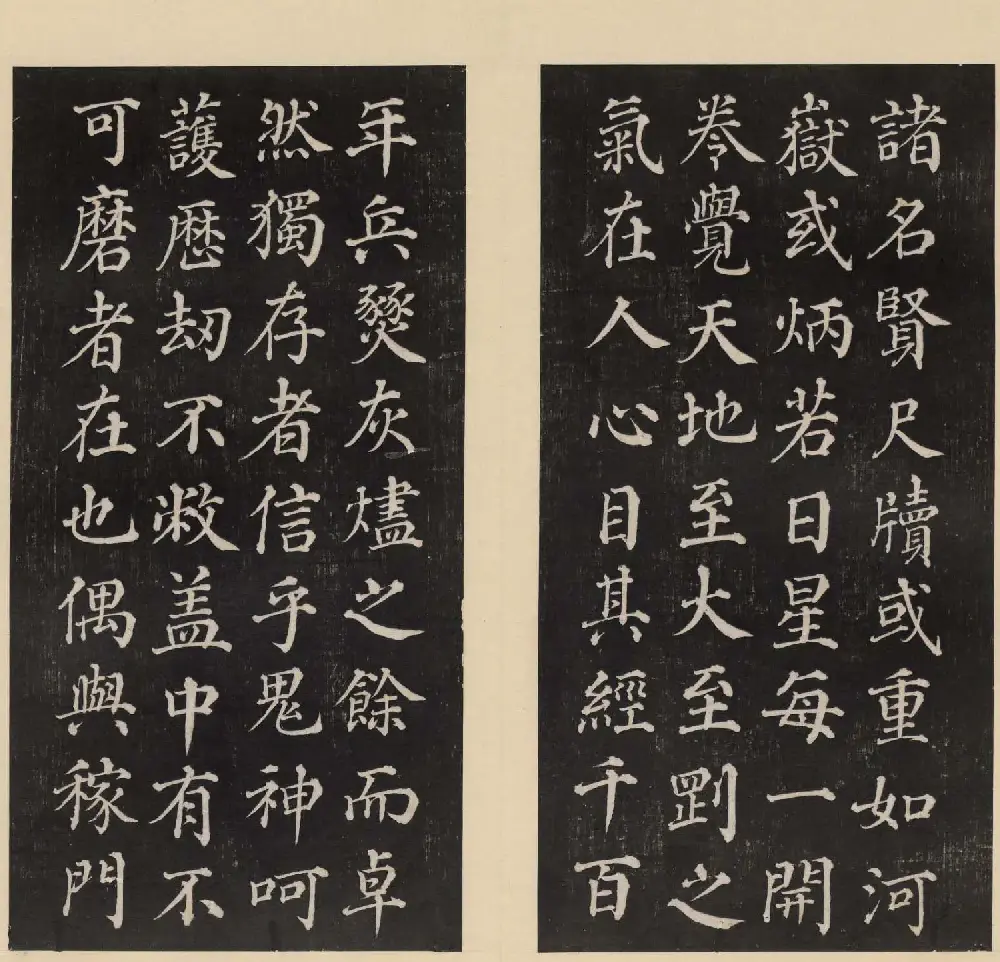 諸名賢尺牘或重如河
嶽或炳若日星每一開
卷覺天地至大至剛之
氣在人心目其經千百
年兵燹灰燼之餘而卓
然獨存者信乎鬼神呵
護歷劫不敝蓋中有不
可磨者在也偶與稼門